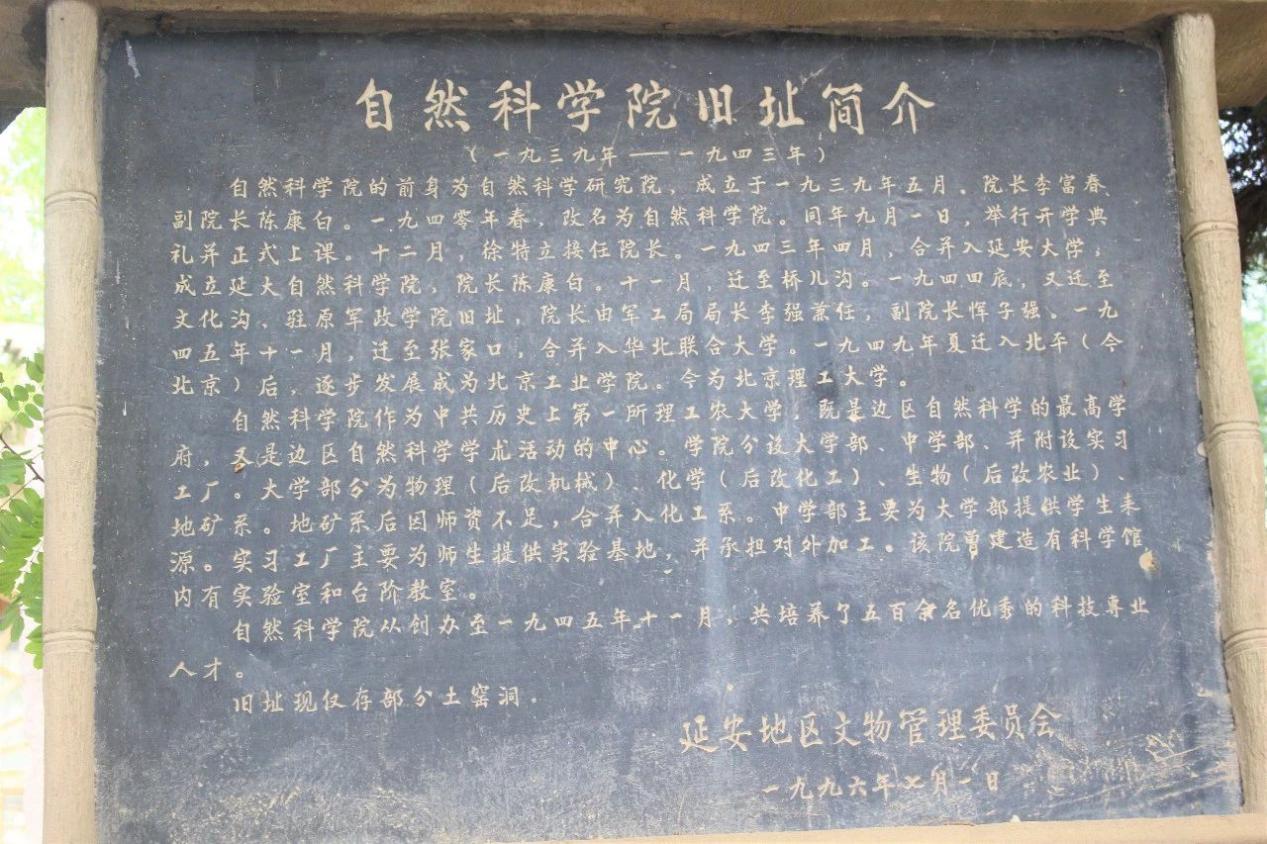 自然科学院旧址简介
（一九三九年——一九四三年）
自然科学院的前身为自然科学研究院，成立于一九三九年五月。院长李富春、
副院长陈康白。一九四零年春，改名为自然科学院。同年九月一日，举行开学典
礼并正式上课。十二月，徐特立接任院长。一九四三年四月，合并入延安大学，
成立延大自然科学院，院长陈康白。十一月，迁至桥儿沟。一九四四底，又迁至
文化沟、驻原军政学院旧址，院长由军工局局长李强兼任，副院长恽子强、一九
四五年十一月，迁至张家口，合并入华北联合大学。一九四九年夏迁入北平（今
北京）后，逐步发展成为北京工业学院。今为北京理工大学。
自然科学院作为中共历史上第一所理工农大学。既是边区自然科学的最高学
府，又是边区自然科学学术活动的中心。学院分设大学部、中学部、并附设实习
工厂。大学部分为物理（后改机械）、化学（后改化工）、生物（后改农业）、
地矿系。地矿系后因师资不足，合并入化工系。中学部主要为大学部提供学生来
源。实习工厂主要为师生提供实验基地，并承担对外加工。该院曾建造有科学馆
内有实验室和台阶教室。
自然科学院从创办至一九四五年十一月，共培养了五百余名优秀的科技专业
人才。
旧址现仅存部分土窑洞．
延安地区文物管理委员会
一九九六年七月一日